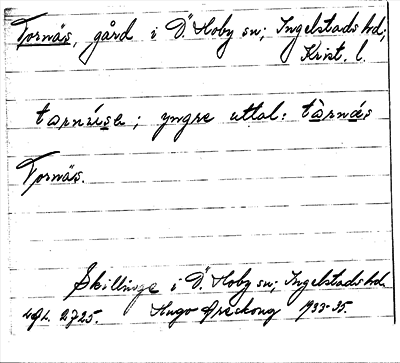 Tornäs, gård i Ö. Hoby sn; Ingelstads hd;
Krist. l.
tarnise; yngre uttal: tàrnás
Tornäs.
Skillinge i Ö. Hoby sn; Ingelstads hd.
2725. Hugo Areskoug 1933-35.